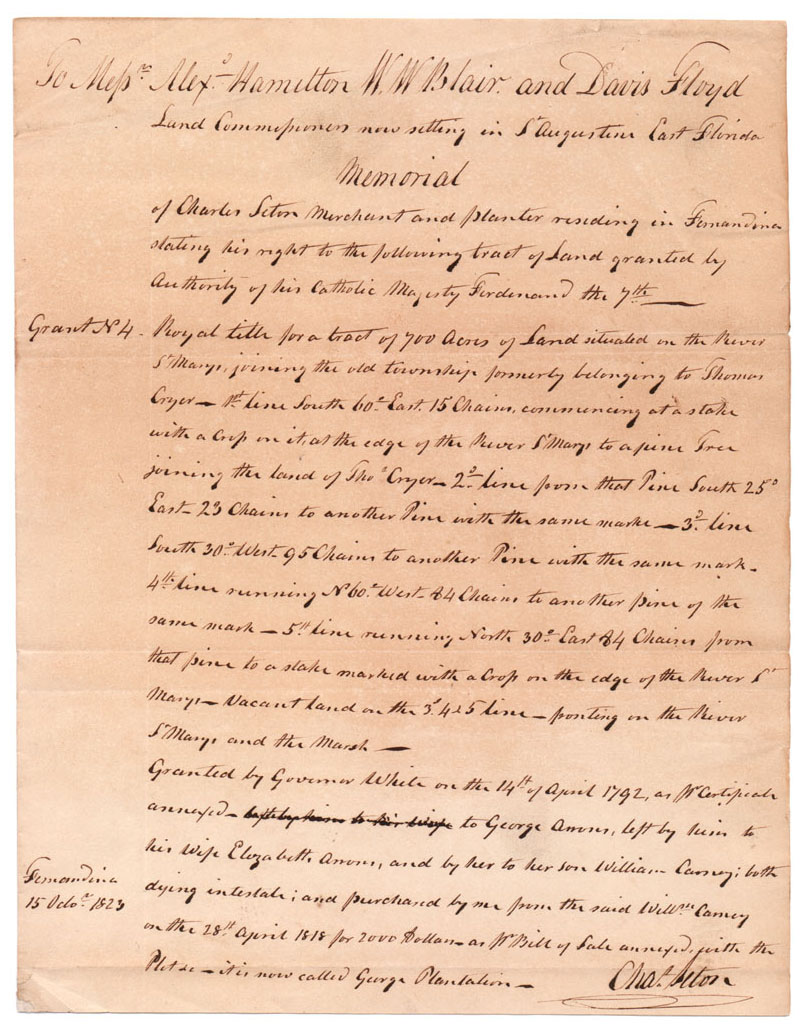 To Messrs. Alexr. Hamilton W. W Blair. and Davis Floyd
Land Commissioners now setting in St Augustine East Florida
Memorial
of Charles Seton Merchant and planter residing in Fernandina
stating his right to the following tract of Land granted by
Authority of his Catholic Majesty Ferdinand the 7th
Grant N 4 - Royal title for a tract of 700 Acres of Land situated on the River
St Marys, joining the old township formerly belonging to Thomas
Cryer - 1st line South 60d East. 15 Chains, commencing at a stake
with a Cross on it, at the edge of the River St Marys to a pine Tree
joining the land of Thos Cryer - 2d line from that Pine South 25o
East - 23 Chains to another Pine with the same marke - 3d line
South 30d West - 95 Chains to another Pine with the same mark -
4th line running No 60d West - 84 Chains to another pine of the
same mark - 5th line running North 30d East 84 Chains from
that pine to a stake marked with a Cross on the edge of the River St
Marys - Vacant land on the 3d 4 & 5 line - fronting on the River
St Marys and the Marsh -
Granted by Governor White on the 14th of April 1792, as pr Certificate
annexed - left by him to his Wife to George Arons, left by him to
his Wife Elezabeth Arons, and by her to her son William Carney; both
dying intestate; and purchased by me from the said Willm Carney
on the 28th April 1818 for 2000 Dollars - as pr Bill of Sale annexed, with the
Plot &c - it is now called George Plantation -
Fernandina
15 Octor. 1823
Chas. Seton